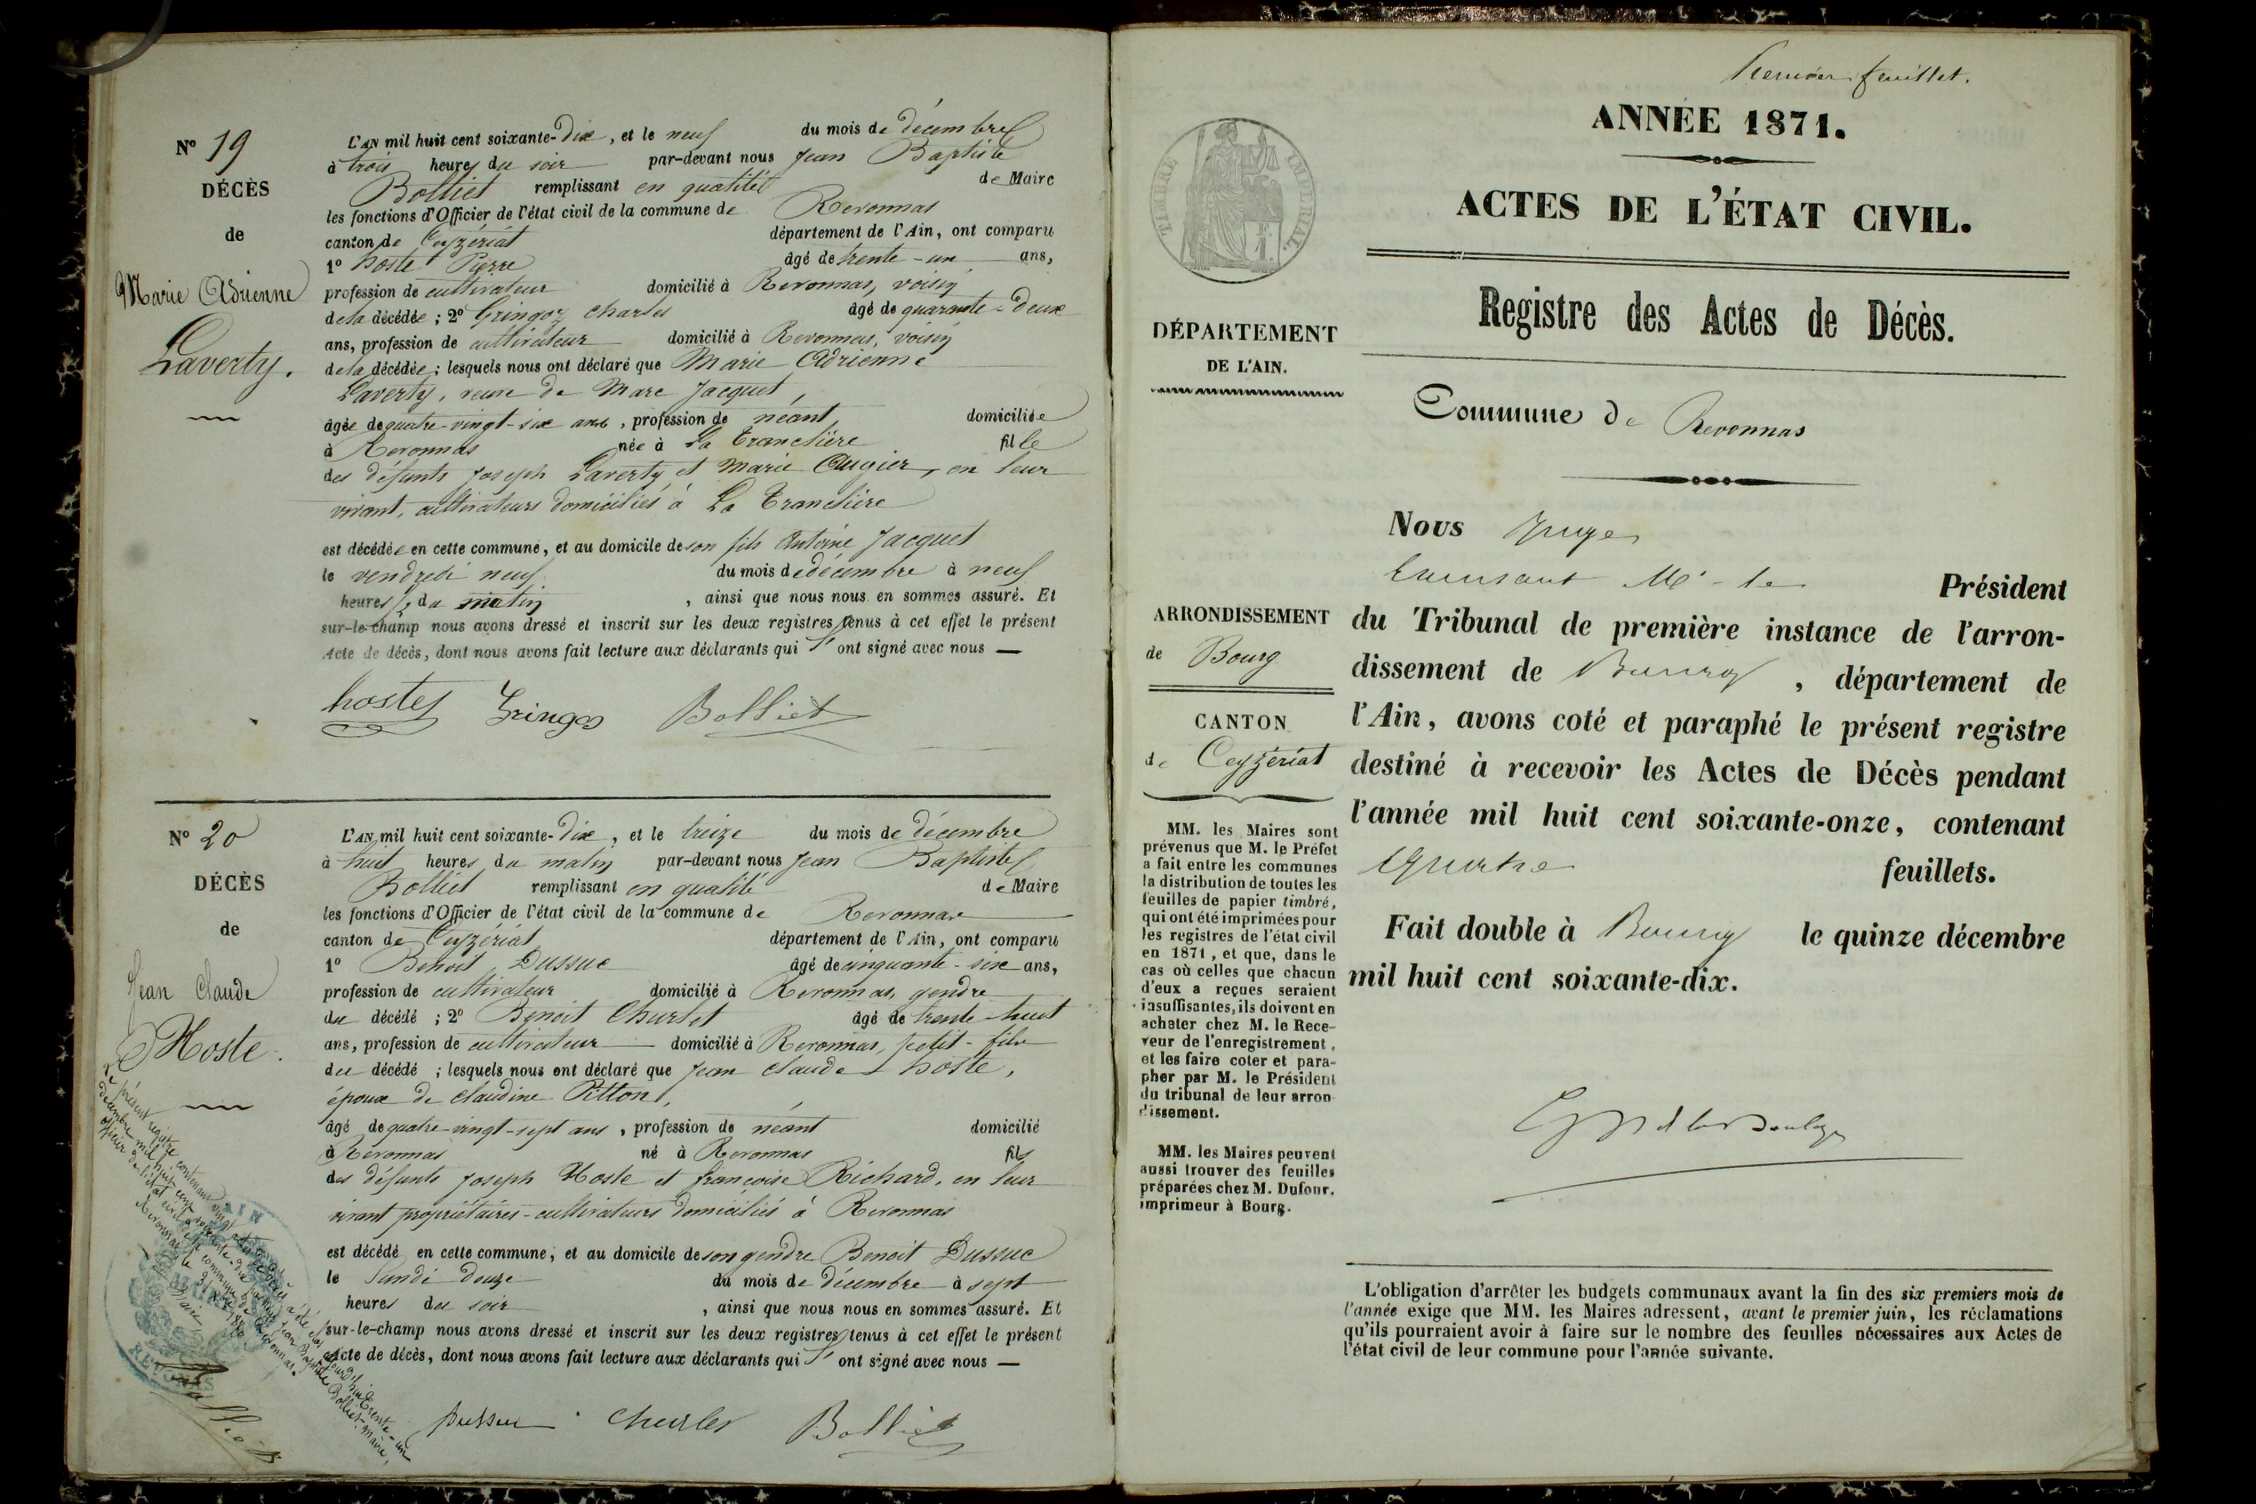 Nº 19
DÉCÈS
de
Marie Adrienne
Laverty.
L'AN mil huit cent soixante-dix, et le neuf du mois de décembre
à trois heures du soir par-devant nous Jean Baptiste
Bolliet remplissant en qualité de Maire
les fonctions d'Officier de l'état civil de la commune de Revonnas
canton de Ceyzériat département de l'Ain, ont comparu
1º hoste Pierre âgé de trente-un ans,
profession de cultivateur domicilié à Revonnas, voisin
de la décédée; 2º Gringoz Charles âgé de quarante-deux
ans, profession de cultivateur domicilié à Revonnas, voisin
de la décédée; lesquels nous ont déclaré que Marie Adrienne
Laverty, veuve de Marc Jacquet,
âgée de quatre-vingt-six ans, profession de néant domiciliée
à Revonnas née à La Tranclière fille
des défunts Joseph Laverty et Marie Augier, en leur
vivant, cultivateurs domiciliés à La Tranclière
est décédée en cette commune, et au domicile de son fils Antoine Jacquet
le vendredi neuf du mois de décembre à neuf
heures du matin, ainsi que nous nous en sommes assuré. Et
sur-le-champ nous avons dressé et inscrit sur les deux registres tenus à cet effet le présent
Acte de décès, dont nous avons fait lecture aux déclarants qui ont signé avec nous —
hoste Gringoz Bolliet
Nº 20
DÉCÈS
de
Jean Claude
Hoste.
L'AN mil huit cent soixante-dix, et le treize du mois de décembre
à huit heures du matin par-devant nous Jean Baptiste
Bolliet remplissant en qualité de Maire
les fonctions d'Officier de l'état civil de la commune de Revonnas
canton de Ceyzériat département de l'Ain, ont comparu
1º Benoit Dussuc âgé de cinquante-six ans,
profession de cultivateur domicilié à Revonnas, gendre
du décédé; 2º Benoit Churlet âgé de trente-huit
ans, profession de cultivateur domicilié à Revonnas, petit-fils
du décédé; lesquels nous ont déclaré que Jean Claude hoste,
époux de Claudine Pitton,
âgé de quatre-vingt-sept ans, profession de néant domicilié
à Revonnas né à Revonnas fils
des défunts Joseph Hoste et françoise Richard, en leur
vivant propriétaires-cultivateurs domiciliés à Revonnas
est décédé en cette commune, et au domicile de son gendre Benoit Dussuc
le lundi douze du mois de décembre à sept
heures du soir, ainsi que nous nous en sommes assuré. Et
sur-le-champ nous avons dressé et inscrit sur les deux registres tenus à cet effet le présent
Acte de décès, dont nous avons fait lecture aux déclarants qui ont signé avec nous —
Dussuc Churlet Bolliet
Le présent registre contenant vingt actes de décès a été clos aujourd'hui trente-un
décembre mil huit cent soixante-dix par nous Jean Baptiste Bolliet, maire,
officier de l'état civil de la commune de Revonnas.
Revonnas le
Maire
Bolliet
Premier feuillet.
ANNÉE 1871.
ACTES DE L'ÉTAT CIVIL.
TIMBRE IMPÉRIAL
Registre des Actes de Décès.
DÉPARTEMENT
DE L'AIN.
Commune de Revonnas
ARRONDISSEMENT
de Bourg
CANTON
de Ceyzériat
MM. les Maires sont
prévenus que M. le Préfet
a fait entre les communes
la distribution de toutes les
feuilles de papier timbré,
qui ont été imprimées pour
les registres de l'état civil
en 1871, et que, dans le
cas où celles que chacun
d'eux a reçues seraient
insuffisantes, ils doivent en
acheter chez M. le Rece-
veur de l'enregistrement,
et les faire coter et para-
pher par M. le Président
du tribunal de leur arron-
dissement.
MM. les Maires peuvent
aussi trouver des feuilles
préparées chez M. Dufour,
imprimeur à Bourg.
Nous Juge
Président
du Tribunal de première instance de l'arron-
dissement de Bourg, département de
l'Ain, avons coté et paraphé le présent registre
destiné à recevoir les Actes de Décès pendant
l'année mil huit cent soixante-onze, contenant
Quatre feuillets.
Fait double à Bourg le quinze décembre
mil huit cent soixante-dix.
L'obligation d'arrêter les budgets communaux avant la fin des six premiers mois de
l'année exige que MM. les Maires adressent, avant le premier juin, les réclamations
qu'ils pourraient avoir à faire sur le nombre des feuilles nécessaires aux Actes de
l'état civil de leur commune pour l'année suivante.